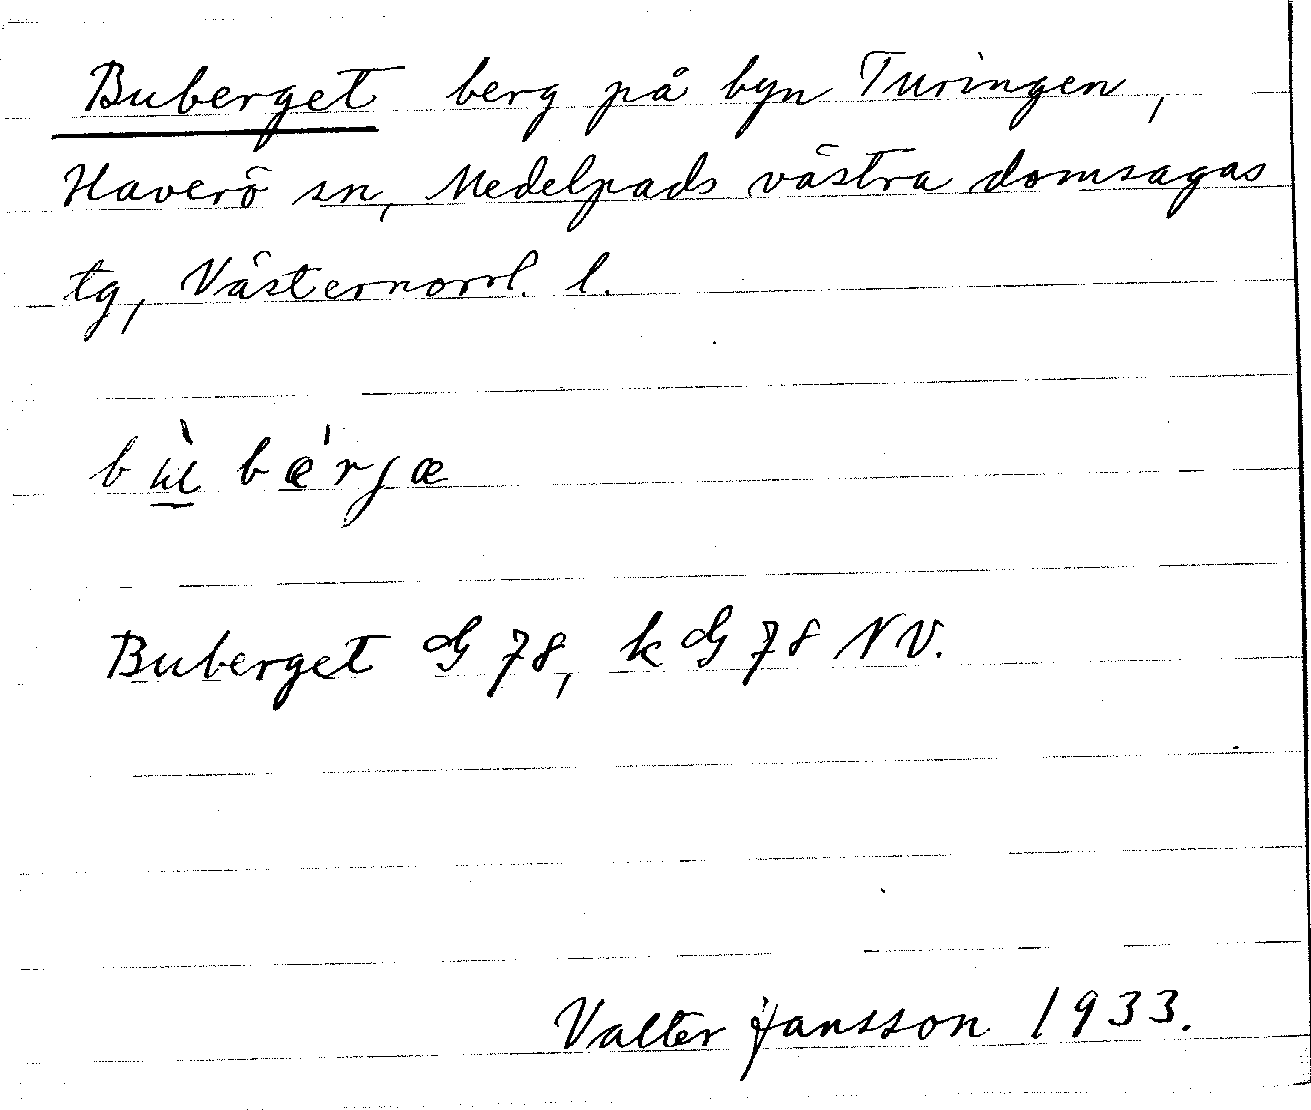 Buberget berg på byn Turingen,
Haverö sn, Medelpads västra domsagas
tg, Västernorrl. l.
bùbérjæ
Buberget G 78, k G 78 NV.
Valter Jansson 1933.